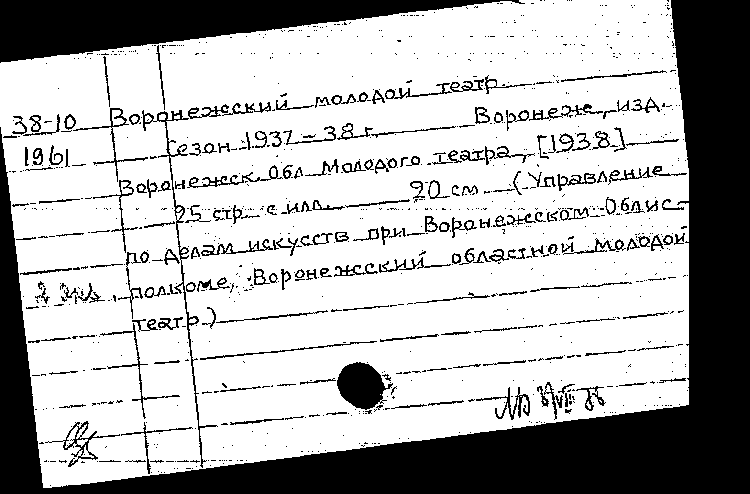 38-10 Воронежский молодой театр.
1961 Сезон 1937-38 г. Воронеж, изд.
Воронежск. Обл. Молодого театра, [1938]
25 стр. с илл. 20 см (Управление
по делам искусств при Воронежском Облис-
2 экз. полкоме, Воронежский областной молодой
театр.)